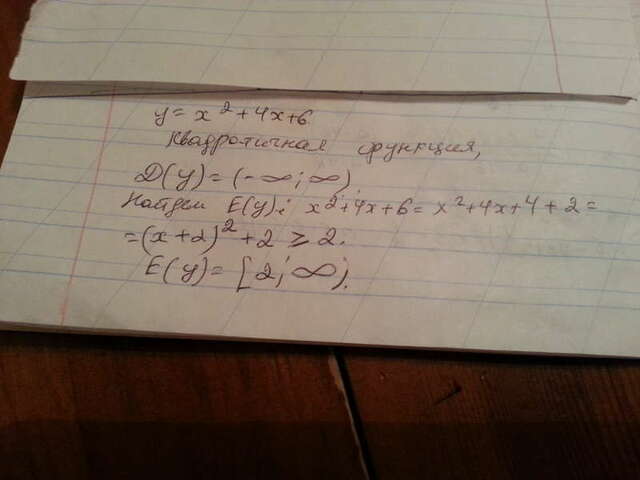 y = x² + 4x + 6
Квадротичная функция,
D(y) = (-∞; ∞),
Найдем E(y): x² + 4x + 6 = x² + 4x + 4 + 2 =
= (x + 2)² + 2 ⩾ 2.
E(y) = [2; ∞).